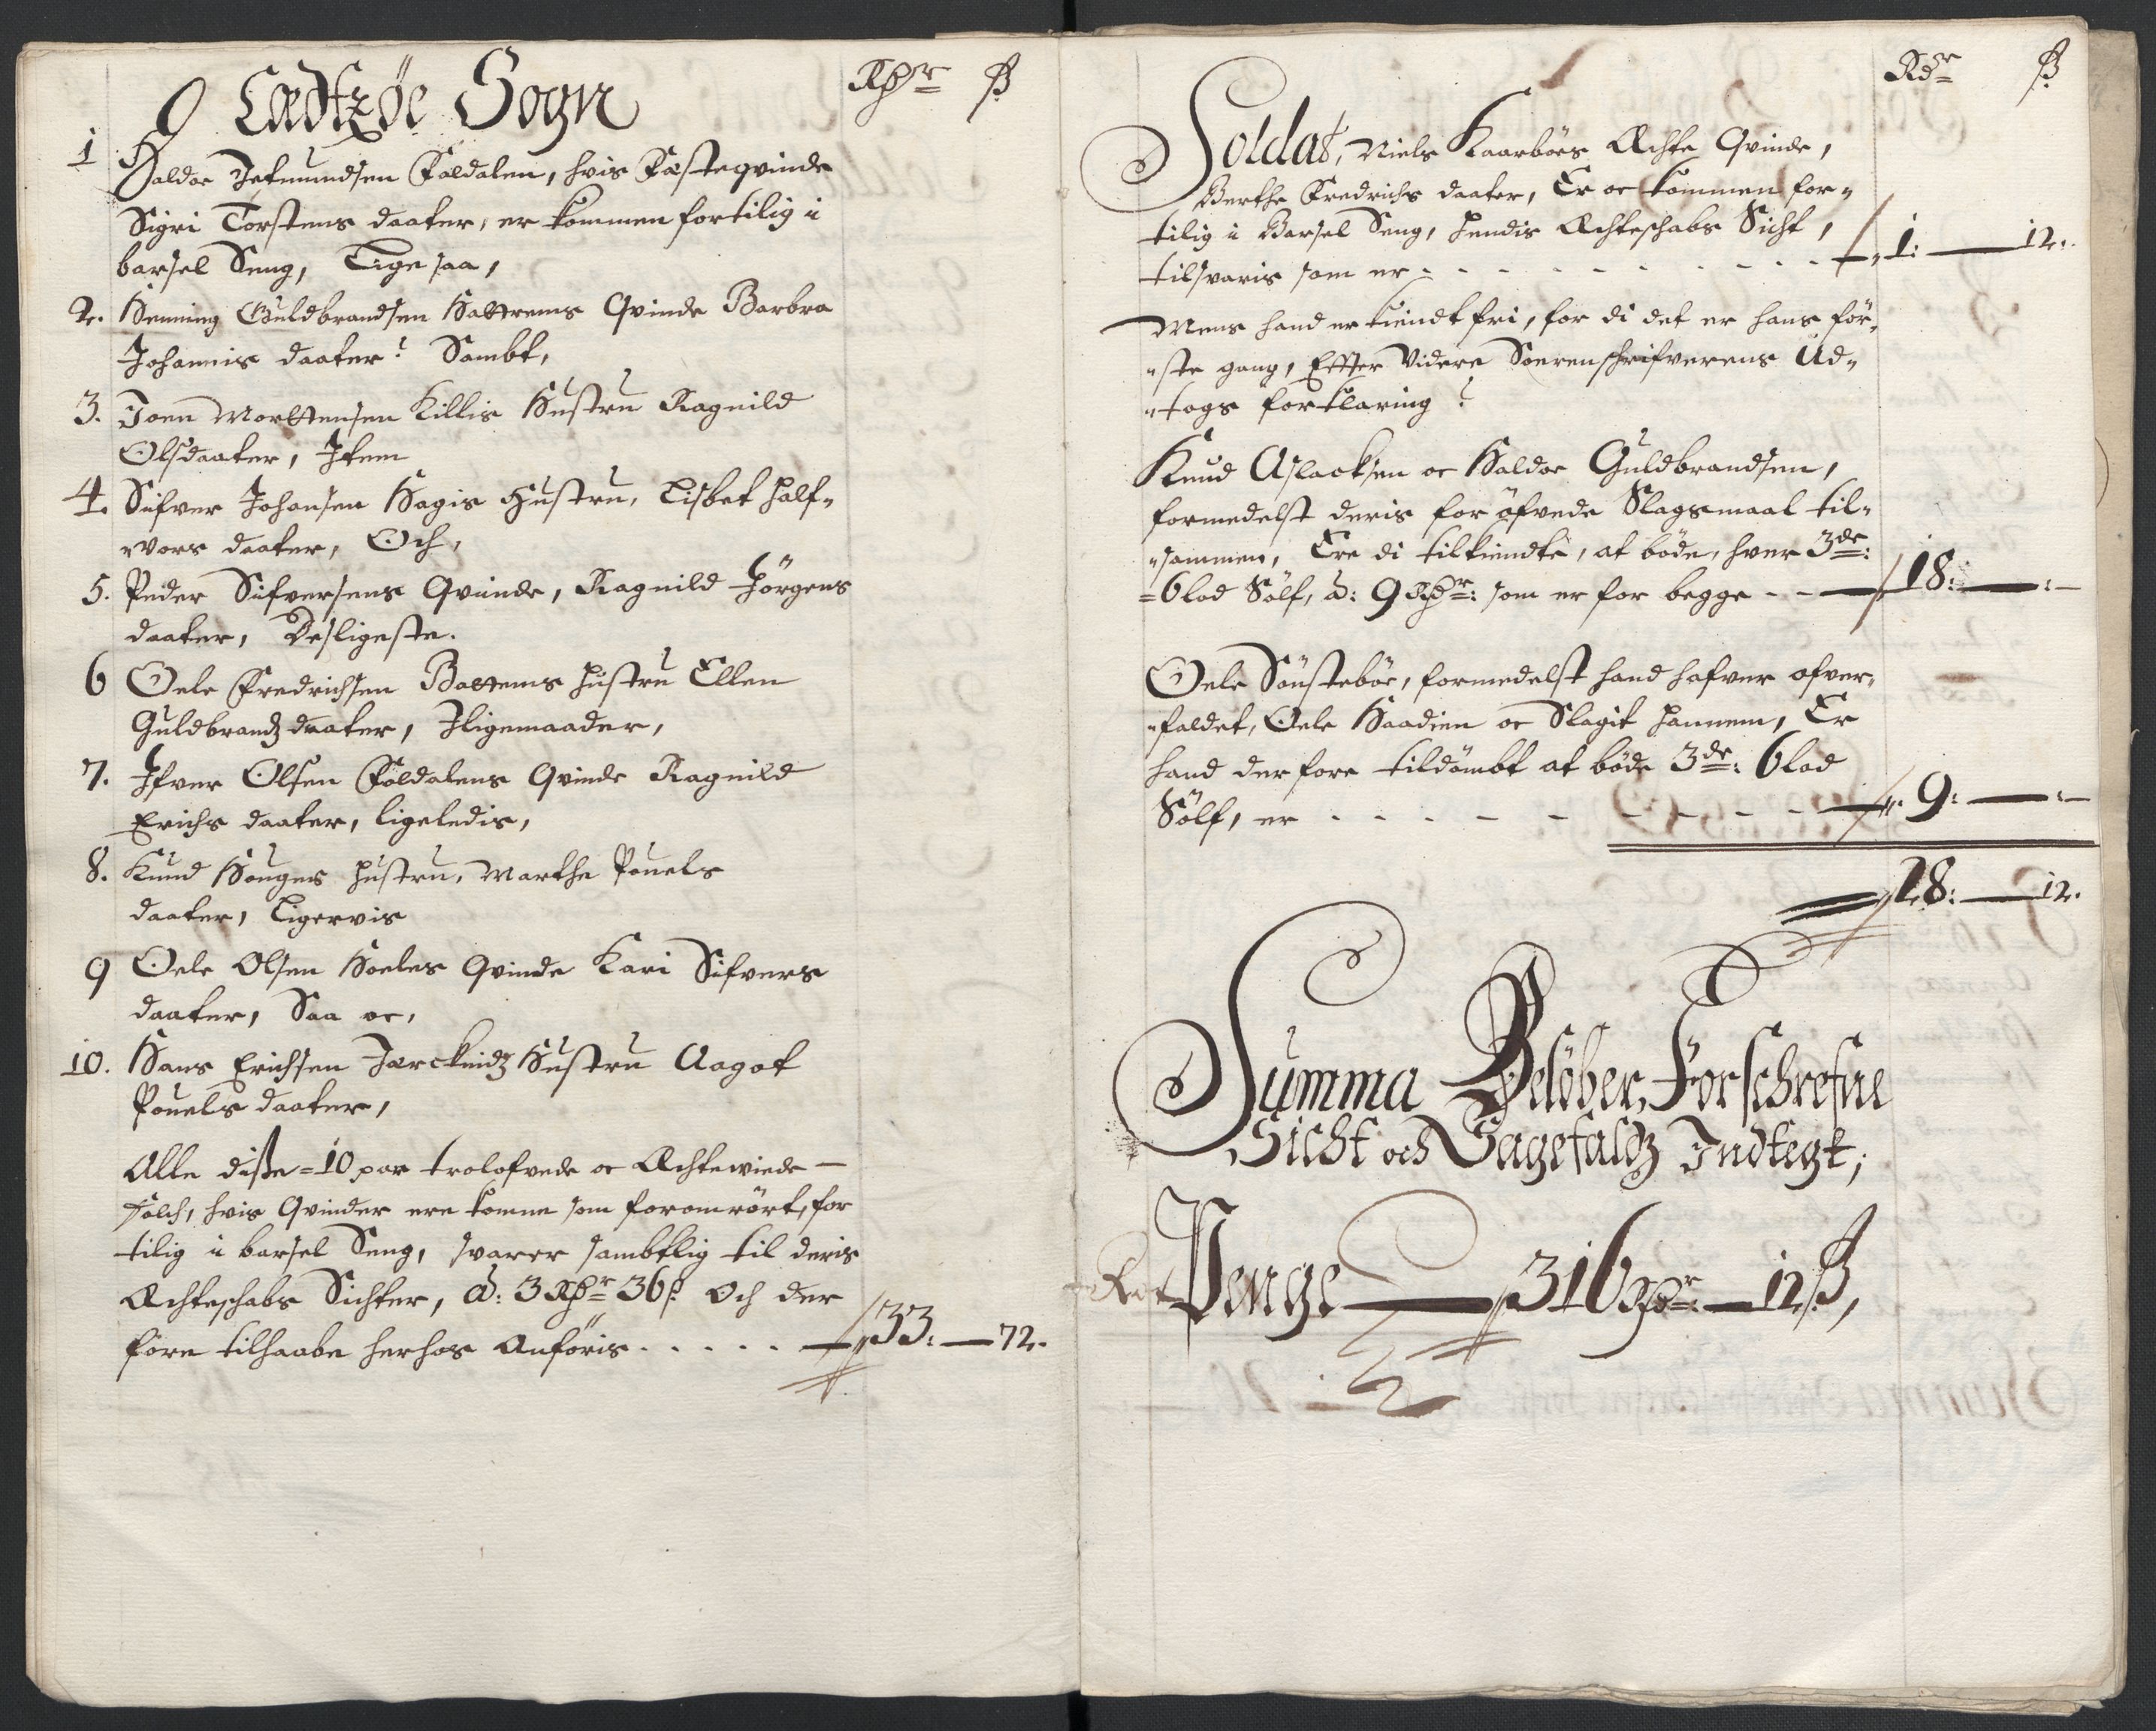 Ledtzøe Sogn
Rdr ß
1 Haldor Jetmundsen Foldalen, hvis Fæsteqvinde
Sigri Torstens daater, er kommen fortilig i
barsel Seng, Lige saa,
2. Henning Guldbrandsen Hattrems Qvinde Barbra
Johannis daater? Sambt,
3. Joen Morttensen Killis Hustru Ragnild
Olsdaater, Item
4. Sifver Johansen Hagis Hustru, Lisbet Half-
vors daater, Och,
5. Peder Sifversens Qvinde, Ragnild Jørgens
daater, Desligeste.
6 Oele Fredrichsen Battems hustru Ellen
Guldbrandz daater, Iligemaader,
7. Ifver Olsen Foldalens Qvinde Ragnild
Erichs daater, ligeledis,
8. Knud Hougens hustru, Marthe Pouels
daater, Ligervis
9 Oele Olsen Hoeles Qvinde Kari Sifvers
daater, Saa oc,
10. Hans Erichsen Jærckindz Hustru Aagot
Pouels daater,
Alle disse =10 par trolofvede oc Ægteviede
folch, hvis Qvinder ere komne som foromrørt, for
tilig i barsel Seng, svarer sambtlig til deris
Ægteschabs Sichter, a: 3 Rdr 36 ß Och der
fore tilhaabe herhos Anføris . . . . . 33: — 72.
Rdr ß
Soldat, Niels Kaarbøes Ægte Qvinde,
Berthe Fredrichs daater, Er oc kommen for-
tilig i Barsel Seng, hendis Ægteschabs Sicht,
tilsvaris som er - - - - - - - 1: — 12:
Mens hand er kiendt fri, for di det er hans før-
ste gang, Effter Videre Sorenschrifverens Ud-
togs forklaring?
Knud Aslacksen oc Haldor Guldbrandsen,
formedelst deris for øfvede Slagsmaal til-
sammen, Ere di tilkiendte, at bøde, hver 3de:
=6 lod Sølf, a: 9 Rdr: som er for begge - - 18: — : —
Oele Sønstebøe, formedelst hand hafver ofver-
faldet, Oele Haadien oc Slagit hannem, Er
hand derfore tildømbt at bøde 3de: 6 lod
Sølf, er - - - - - - - - 9: — : —
28: — 12.
Summa Beløber, Forschrefne
Sicht och Sagefaldz Indtegt;
Penge — 316 Rdr: — 12 ß,